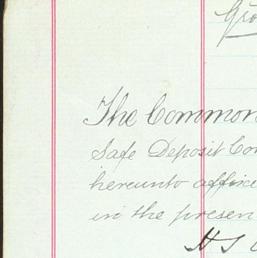 The Common
Safe Deposit Com
hereunto affixe
in the presen